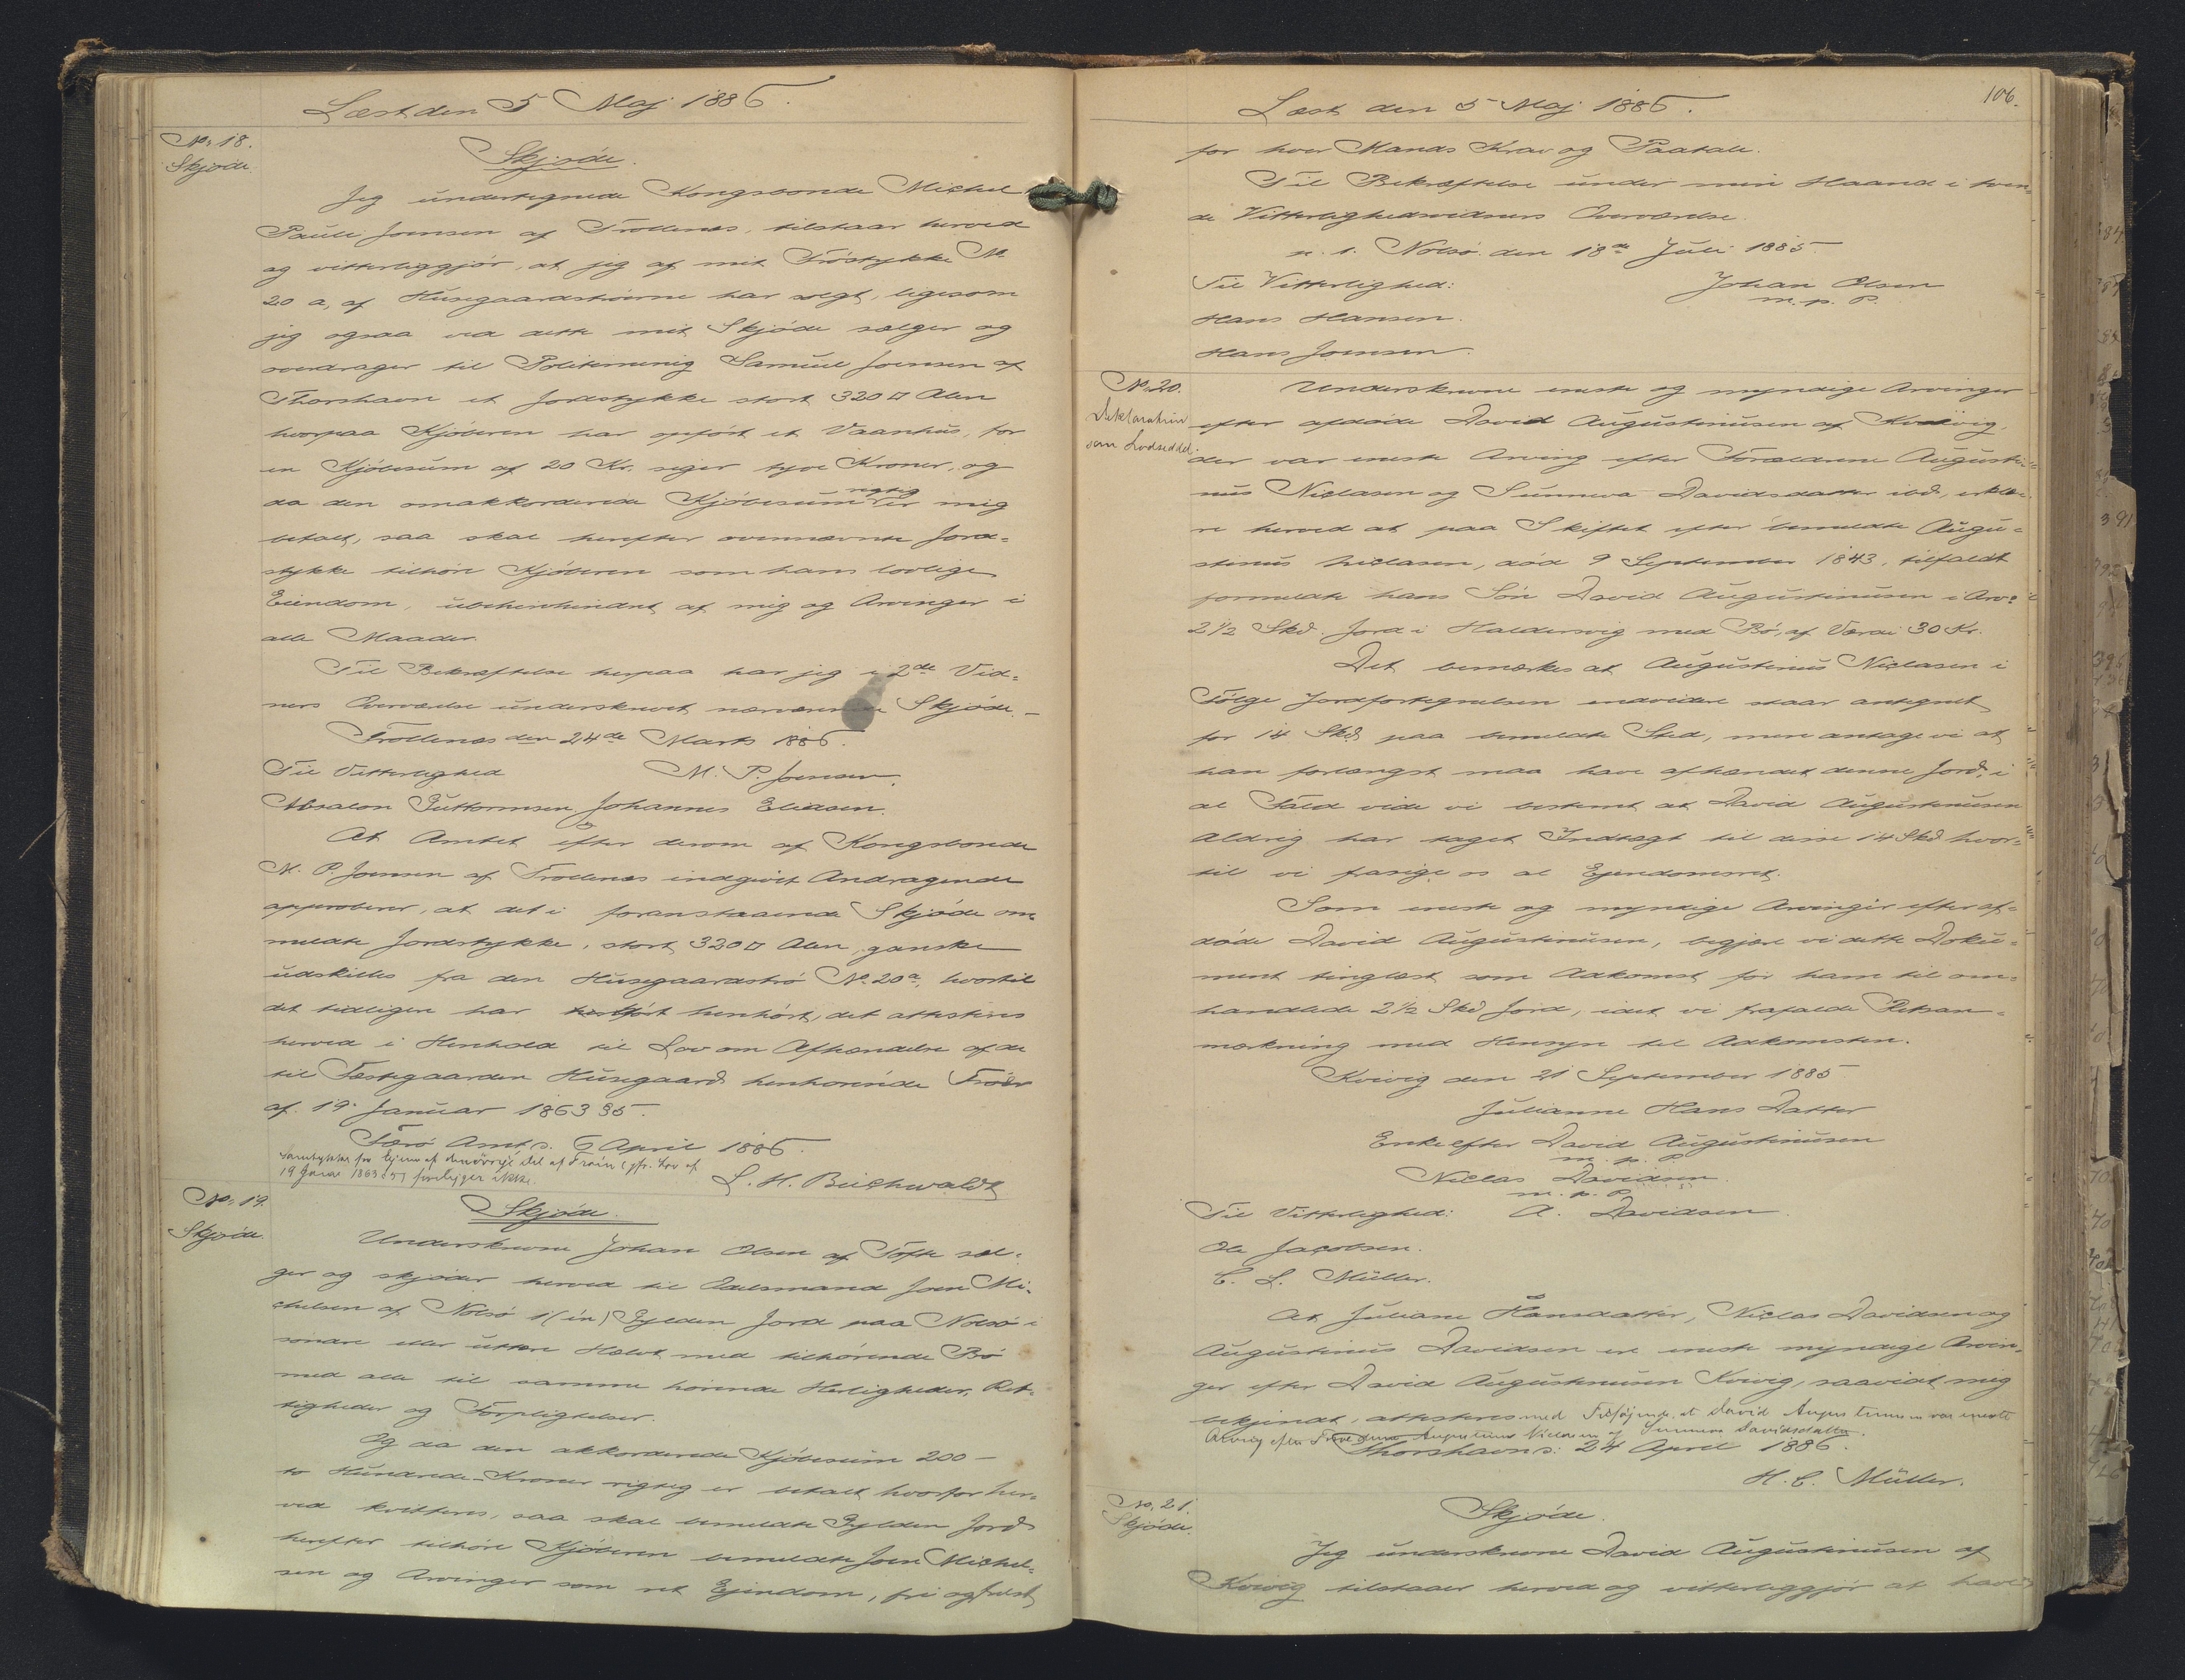 Læst den 5 Maj 1886.
No. 18.
Skjøde
Skjøde.
Jeg undertegnede Kongsbonde Michel
Pauli Joensen af Trøllenæs, tilstaar herved
og vitterliggjør, at jeg af mit Trøstykke No
20 a, af Husegaardstrøerne har solgt, ligesom
jeg ogsaa ved dette mit Skjøde sælger og
overdrager til Politimenig Samuel Joensen af
Thorshavn et Jordstykke stort 320 □ Alen
hvorpaa Kjøberen har opført et Vaanhus, for
en Kjøbesum af 20 Kr. siger tyve Kroner, og
da den omakkorderede Kjøbesum rigtig er mig
betalt, saa skal herefter ovennævnte Jord-
stykke tilhøre Kjøberen som hans lovlige
Eiendom, ubehindret af mig og Arvinger i
alle Maader.
Til Bekræftelse herpaa har jeg i 2de Vid-
ners Overværelse underskrevet nærværende Skjøde.
Trøllenæs den 24de Marts 1886.
Til Vitterlighed M. P. Joensen.
Absalon Guttormsen Johannes Eliasen.
At Amtet efter derom af Kongsbonde
M. P. Joensen af Trøllenæs indgivet Andragende
approberer, at det i foranstaaende Skjøde om-
meldte Jordstykke, stort 320 □ Alen, ganske
udskilles fra den Husegaardstrø No. 20a, hvortil
det tidligere har henhørt, det attesteres
herved i Henhold til Lov om Afhændelse af de
til Fæstegaarden Husegaard henhørende Trøer
af 19. Januar 1863 § 5.
Færø Amt, d. 6 April 1886.
Samtykke fra Ejerne af den øvrige Del af Trøin (jfr. Lov af
19 Janr 1863 § 5) foreligger ikke.
L. H. Buchwaldt
No. 19.
Skjøde.
Skjøde.
Underskrevne Johan Olsen af Tofte sæl-
ger og skjøder herved til Odelsmand Joen Mi-
chelsen af Nolsø 1 (én) Gylden Jord paa Nolsø i
søndre eller uttere Halvt med tilhørende Bø
med alle til samme hørende Herligheder, Ret-
tigheder og Forpligtelser.
Og da den akkorderede Kjøbesum 200 –
to Hundrede – Kroner rigtig er betalt hvorfor her-
ved kvitteres, saa skal bemeldte Gylden Jord
herefter tilhøre Kjøberen bemeldte Joen Michel-
sen og Arvinger som ret Ejendom, fri og frelst
106.
Læst den 5 Maj 1886.
for hver Mands Krav og Paatale.
Til Bekræftelse under min Haand i tven-
de Vitterlighedsvidners Overværelse.
p. t. Nolsø den 18de Juli 1885.
Til Vitterlighed: Johan Olsen
m. p. P.
Hans Hansen.
Hans Joensen.
No. 20.
Deklaration
som Lodseddel.
Underskrevne eneste og myndige Arvinger
efter afdøde David Augustinusen af Kvivig,
der var eneste Arving efter Forældrene Augusti-
nus Niclasen og Sunneva Davidsdatter ibd, erklæ-
re herved at paa Skiftet efter bemeldte Augu-
stinus Niclasen, død 9 September 1843, tilfaldt
formeldte hans Søn David Augustinusen i Arv:
2 1/2 Skd. Jord i Haldersvig med Bø, af Værdi 30 Kr.
Det bemærkes at Augustinus Niclasen i
Følge Jordfortegnelsen endvidere staar antegnet
for 14 Skd paa bemeldte Sted, men antage vi at
han forlængst maa have afhændet denne Jord, i
al Fald vide vi bestemt at David Augustinusen
aldrig har taget Indtægt til disse 14 Skd hvor-
til vi frasige os al Ejendomsret.
Som eneste og myndige Arvinger efter af-
døde David Augustinusen, begjære vi dette Doku-
ment tinglæst som Adkomst for ham til om-
handlede 2 1/2 Skd Jord, idet vi frafalde Retsan-
mærkning med Hensyn til Adkomsten.
Kvivig den 21 September 1885
Julianne Hans Datter
Enke efter David Augustinusen
m. p. P.
Niclas Davidsen.
m. p. P.
Til Vitterlighed: A. Davidsen.
Ole Jacobsen.
C. L. Müller.
At Juliane Hansdatter, Niclas Davidsen og
Augustinus Davidsen er eneste myndige Arvin-
ger efter David Augustinusen Kvivig, saavidt mig
bekjendt, attesteres med Tilføjende, at David Augustinusen var eneste
Arving efter Forældrene Augustinus Niclasen og Sunneva Davidsdatter.
Thorshavn, d: 24 April 1886.
H. C. Müller.
No. 21.
Skjøde.
Skjøde.
Jeg underskrevne David Augustinusen af
Kvivig tilstaaer herved og vitterliggjør at have